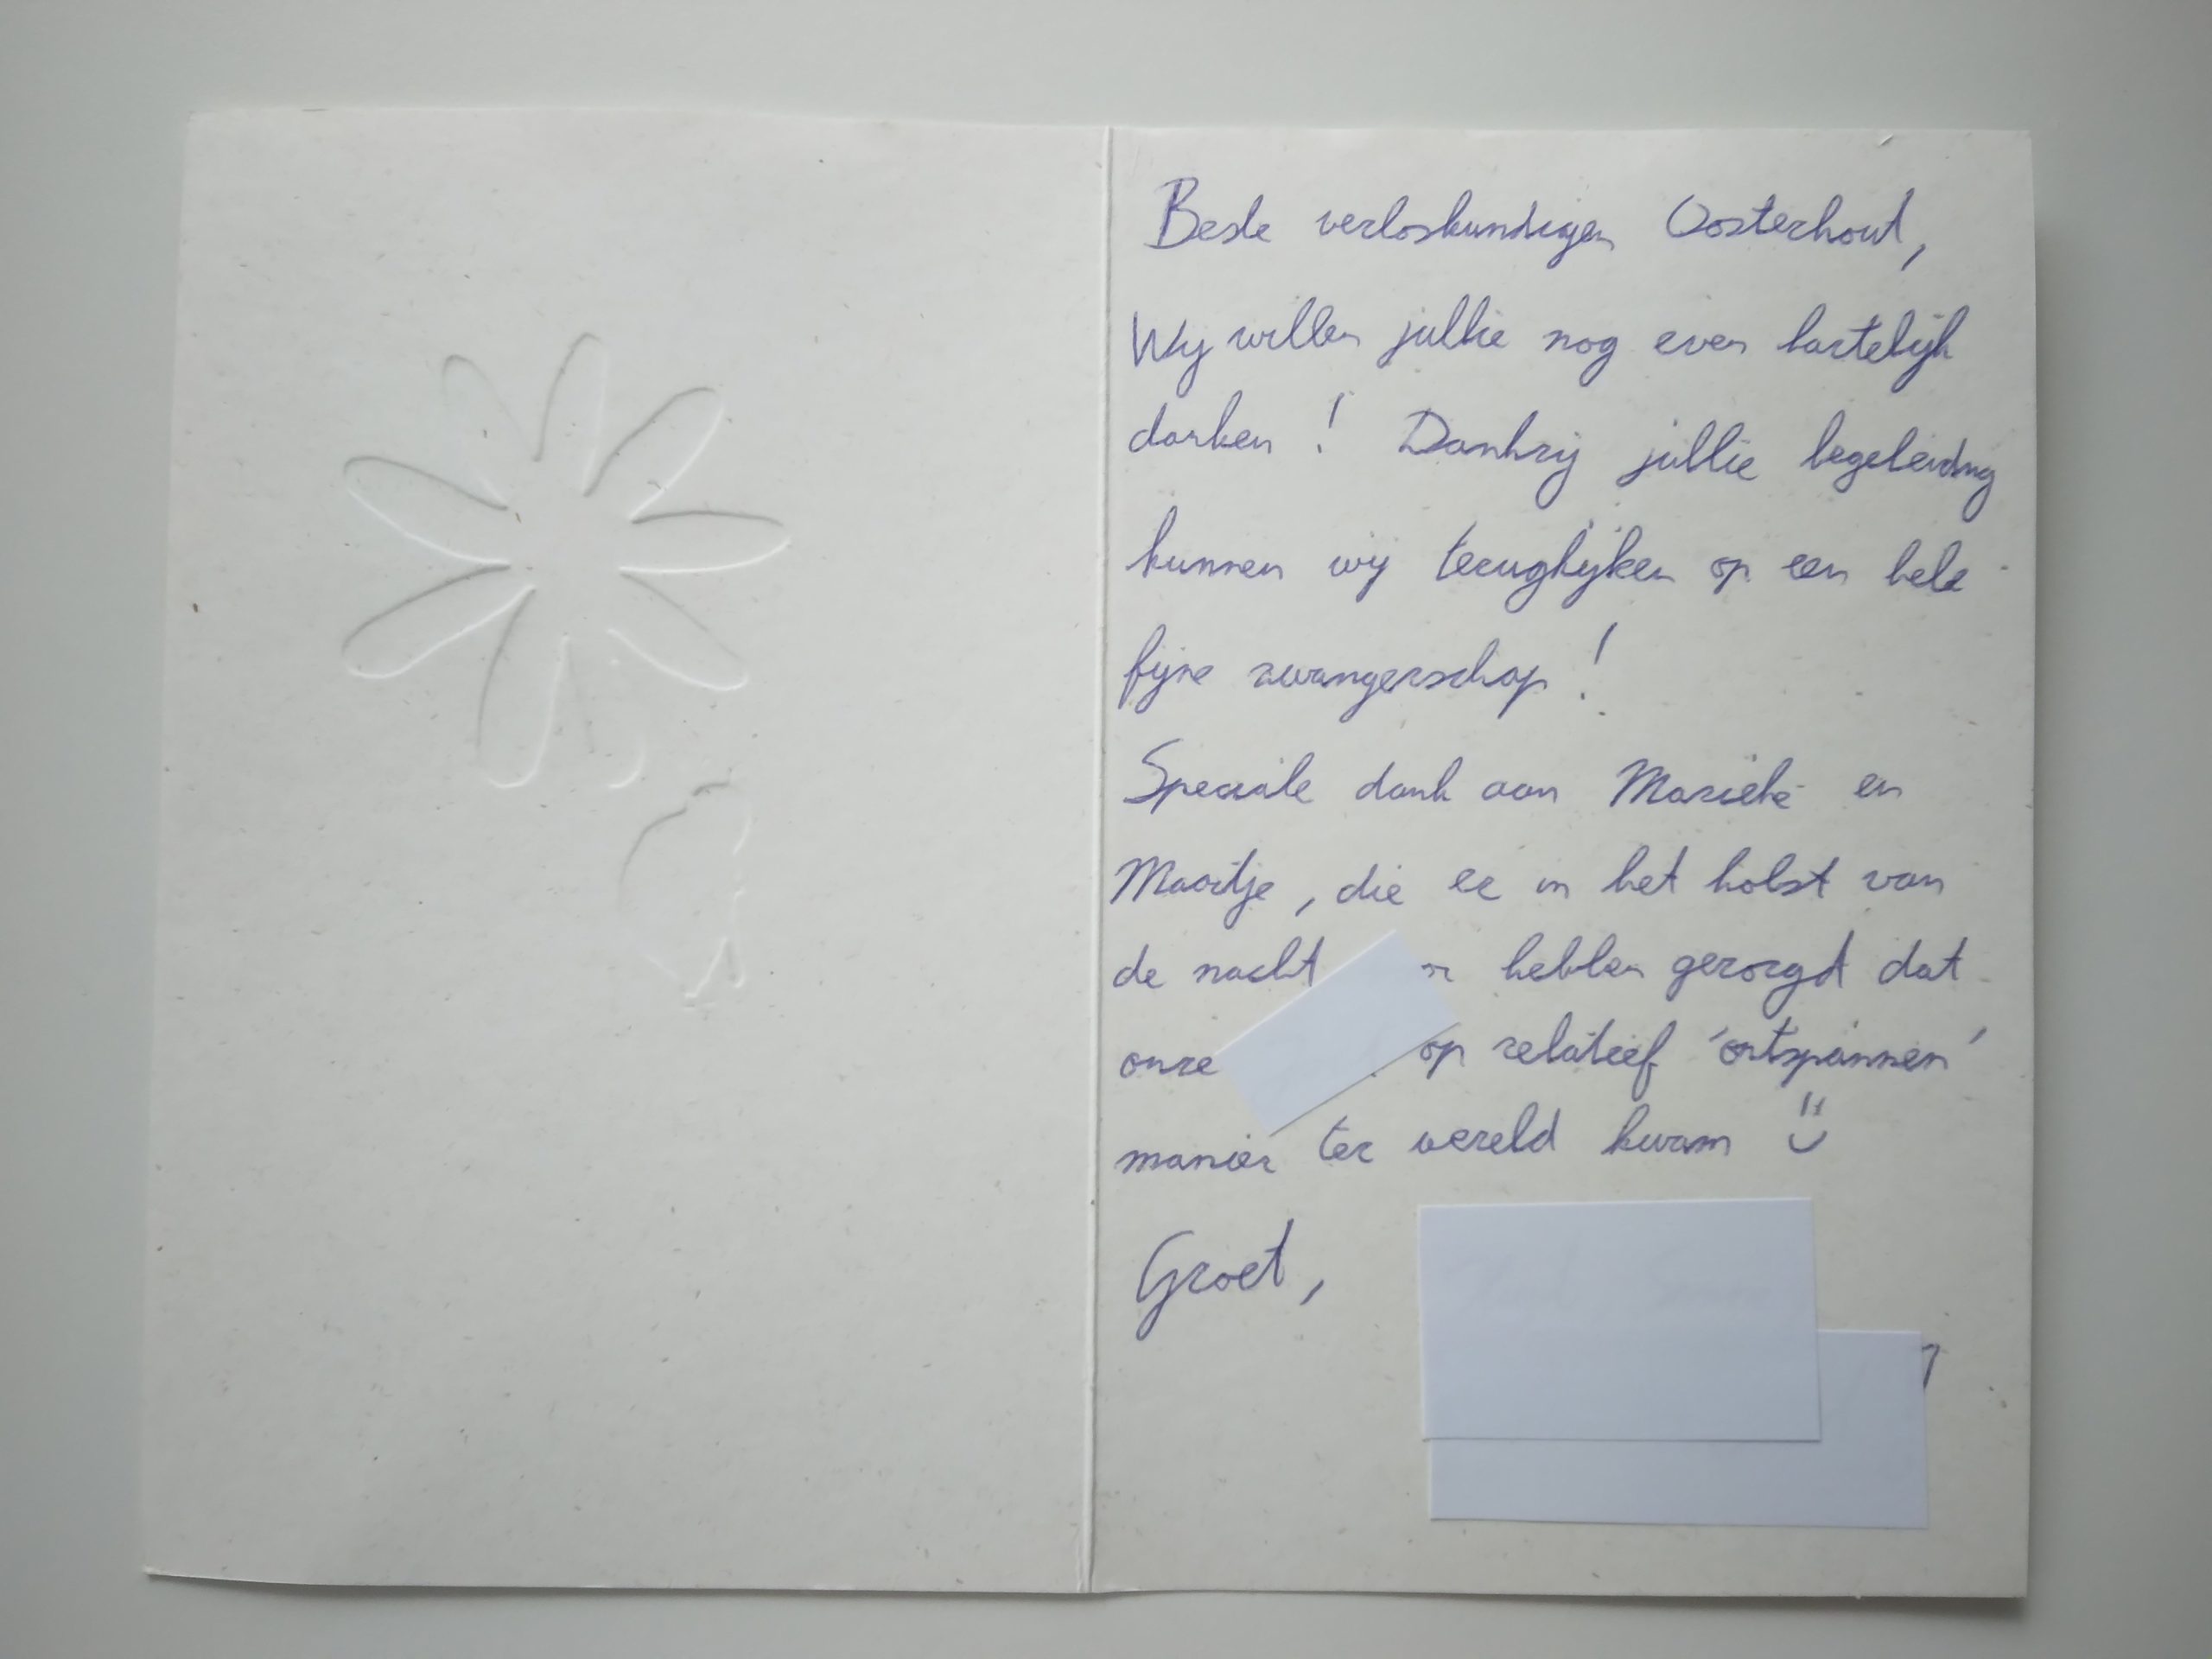 Beste verloskundigen Oosterhout,
Wij willen jullie nog even hartelijk
danken! Dankzij jullie begeleiding
kunnen wij terugkijken op een hele
fijne zwangerschap!
Speciale dank aan Marieke en
Maartje, die er in het holst van
de nacht hebben gezorgd dat
onze op relatief 'ontspannen'
manier ter wereld kwam
Groet,